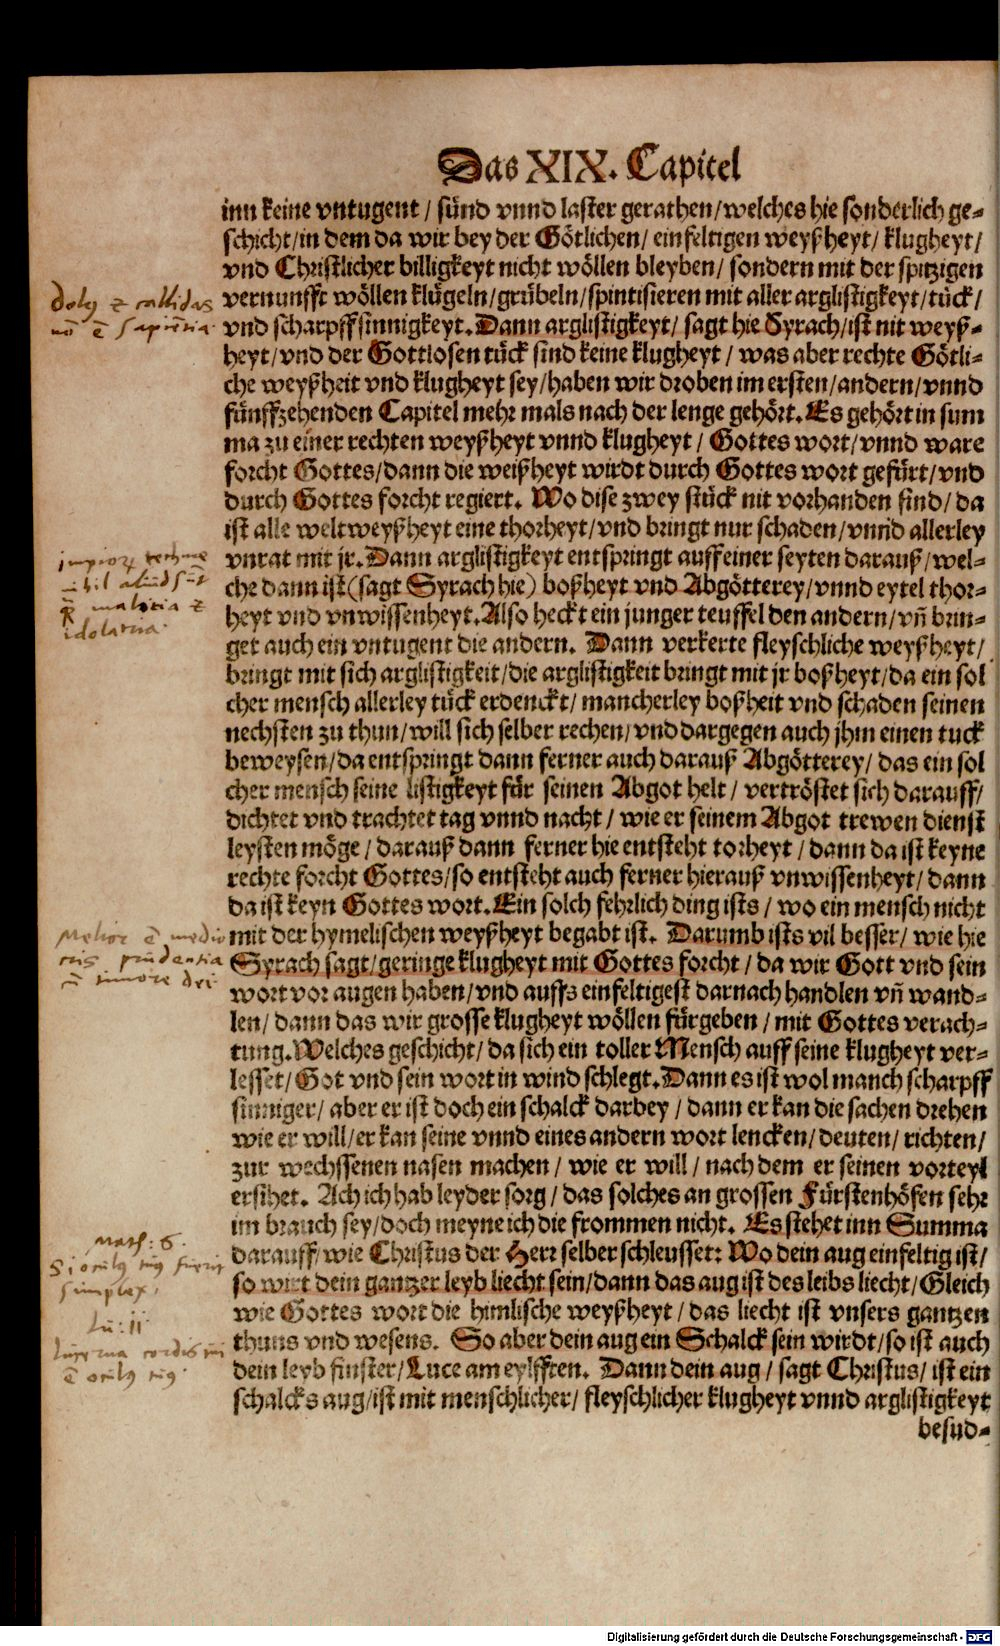 Das XIX. Capitel
inn keine vntugent / sünd vnnd laster gerathen / welches hie sonderlich ge-
schicht / in dem da wir bey der Götlichen / einfeltigen weyßheyt / klugheyt /
vnd Christlicher billigkeyt nicht wöllen bleyben / sondern mit der spitzigen
vernunfft wöllen klügeln / grübeln / spintisieren mit aller arglistigkeyt / tück /
vnd scharpffsinnigkeyt. Dann arglistigkeyt / sagt hie Syrach / ist nit weyß-
heyt / vnd der Gottlosen tück sind keine klugheyt / was aber rechte Götli-
che weyßheit vnd klugheyt sey / haben wir droben im ersten / andern / vnnd
fünffzehenden Capitel mehr mals nach der lenge gehört. Es gehört in sum
ma zu einer rechten weyßheyt vnnd klugheyt / Gottes wort / vnnd ware
forcht Gottes / dann die weißheyt wirdt durch Gottes wort gefürt / vnd
durch Gottes forcht regiert. Wo dise zwey stück nit vorhanden sind / da
ist alle weltweyßheyt eine thorheyt / vnd bringt nur schaden / vnnd allerley
vnrat mit jr. Dann arglistigkeyt entspringt auff einer seyten darauß / wel-
che dann ist (sagt Syrach hie) boßheyt vnd Abgötterey / vnnd eytel thor-
heyt vnd vnwissenheyt. Also heckt ein junger teuffel den andern / vñ brin-
get auch ein vntugent die andern. Dann verkerte fleyschliche weyßheyt /
bringt mit sich arglistigkeit / die arglistigkeit bringt mit jr boßheyt / da ein sol
cher mensch allerley tück erdenckt / mancherley boßheit vnd schaden seinen
nechsten zu thun / will sich selber rechen / vnd dargegen auch jhm einen tuck
beweysen / da entspringt dann ferner auch darauß Abgötterey / das ein sol
cher mensch seine listigkeyt für seinen Abgot helt / vertröstet sich darauff /
dichtet vnd trachtet tag vnnd nacht / wie er seinem Abgot trewen dienst
leysten möge / darauß dann ferner hie entsteht torheyt / dann da ist keyne
rechte forcht Gottes / so entsteht auch ferner hierauß vnwissenheyt / dann
da ist keyn Gottes wort. Ein solch fehrlich ding ists / wo ein mensch nicht
mit der hymelischen weyßheyt begabt ist. Darumb ists vil besser / wie hie
Syrach sagt / geringe klugheyt mit Gottes forcht / da wir Gott vnd sein
wort vor augen haben / vnd auffs einfeltigest darnach handlen vñ wand-
len / dann das wir grosse klugheyt wöllen fürgeben / mit Gottes verach-
tung. Welches geschicht / da sich ein toller Mensch auff seine klugheyt ver-
lesset / Got vnd sein wort in wind schlegt. Dann es ist wol manch scharpff
sinniger / aber er ist doch ein schalck darbey / dann er kan die sachen drehen
wie er will / er kan seine vnnd eines andern wort lencken / deuten / richten /
zur wechssenen nasen machen / wie er will / nach dem er seinen vorteyl
ersihet. Ach ich hab leyder sorg / das solches an grossen Fürstenhöfen sehr
im brauch sey / doch meyne ich die frommen nicht. Es stehet inn Summa
darauff / wie Christus der Herr selber schleusset: Wo dein aug einfeltig ist /
so wirt dein gantzer leyb liecht sein / dann das aug ist des leibs liecht / Gleich
wie Gottes wort die himlische weyßheyt / das liecht ist vnsers gantzen
thuns vnd wesens. So aber dein aug ein Schalck sein wirdt / so ist auch
dein leyb finster / Luce am eylfften. Dann dein aug / sagt Christus / ist ein
schalcks aug / ist mit menschlicher / fleyschlicher klugheyt vnnd arglistigkeyt
besud-
dolꝰ et calliditas
nō ē sapiētia
impioꝝ techne
nihil aliud sūt
q̄ malitia et
idolatria
Melior ē medio
cris prudentia
cū timore dei
Math: 6.
Si oculꝰ tuꝰ fuerit
simplex,
Lu: 11
lucerna cordis tui
ē oculꝰ tuꝰ
Digitalisierung gefördert durch die Deutsche Forschungsgemeinschaft - DFG